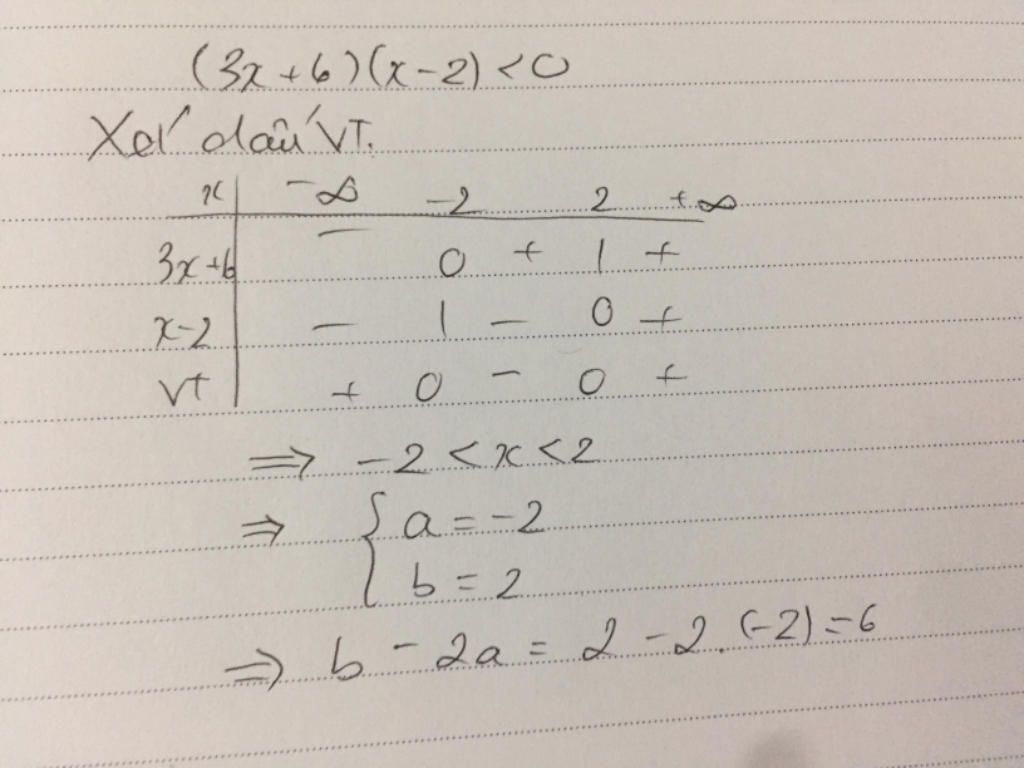 (3x+6)(x-2)<0
Xét dấu VT.
x | -∞ -2 2 +∞
3x+6 | - 0 + | +
x-2 | - | - 0 +
VT | + 0 - 0 +
⇒ -2<x<2
⇒ { a=-2
b=2
⇒ b-2a=2-2.(-2)=6